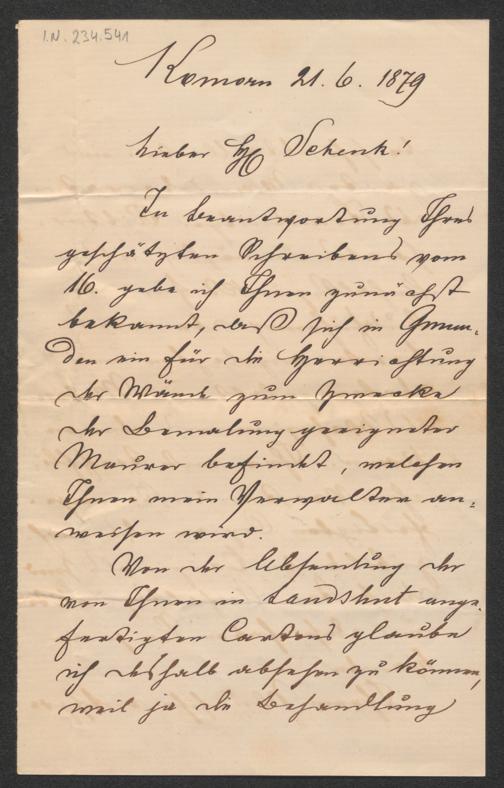 I.N. 234.541
Komorn 21. 6. 1879
Lieber H Schenk!
In Beantwortung Ihres
geschätzten Schreibens vom
16. gebe ich Ihnen zunächst
bekannt, daß sich in Gmun-
den ein für die Herrichtung
der Wände zum Zwecke
der Bemalung geeigneter
Maurer befindet, welchen
Ihnen mein Verwalter an-
weisen wird.
Von der Absendung der
von Ihnen in Landshut ange-
fertigten Cartons glaube
ich deshalb absehen zu können,
weil ja die Behandlung